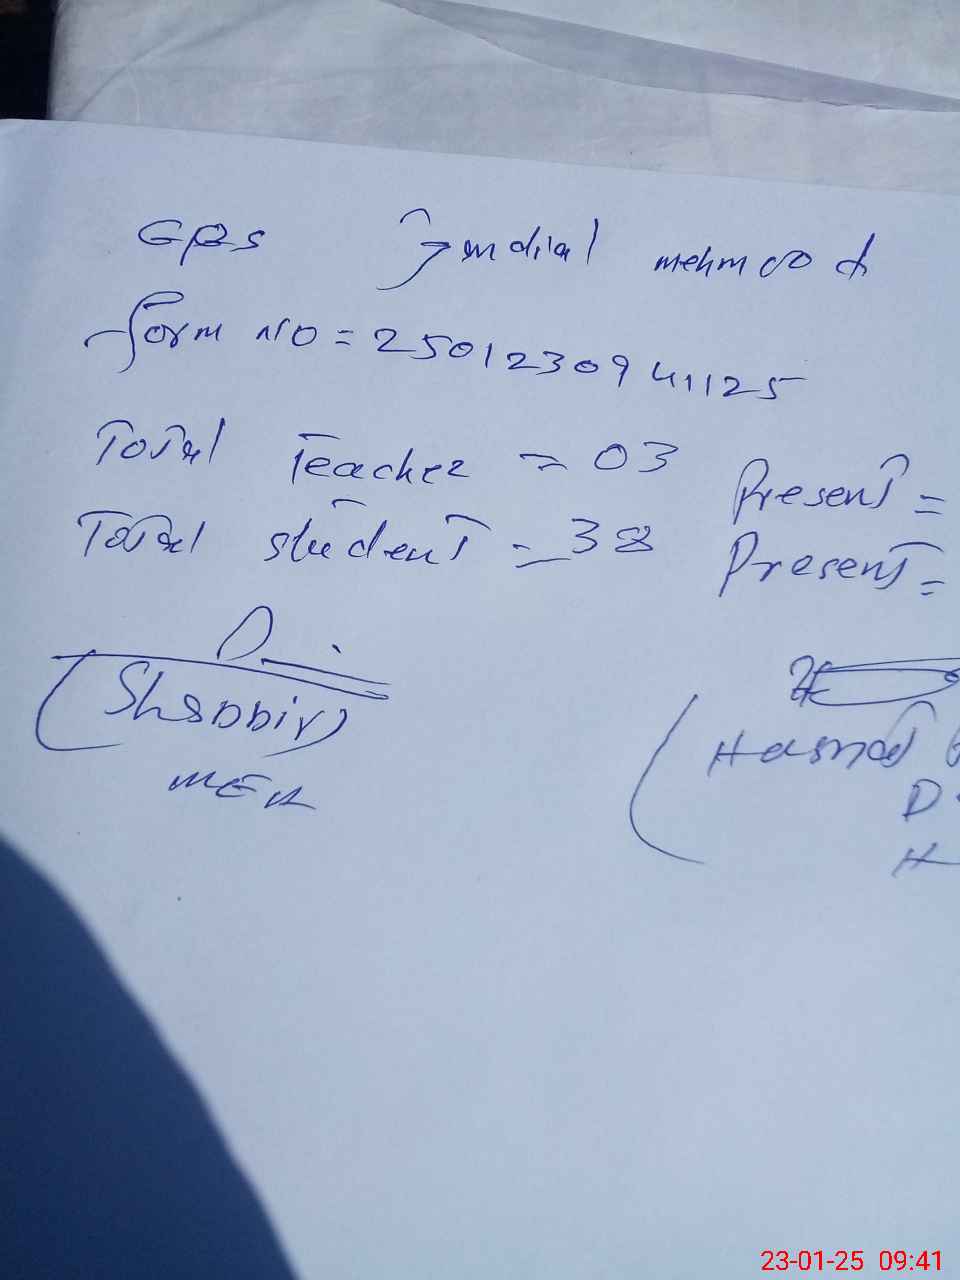 GPS Jendial mehmood
form NO = 250123094125
Total Teacher = 03 Present =
Total student = 38 Present =
(Shabbir)
MEA
(Hasnat
D
H
23-01-25 09:41